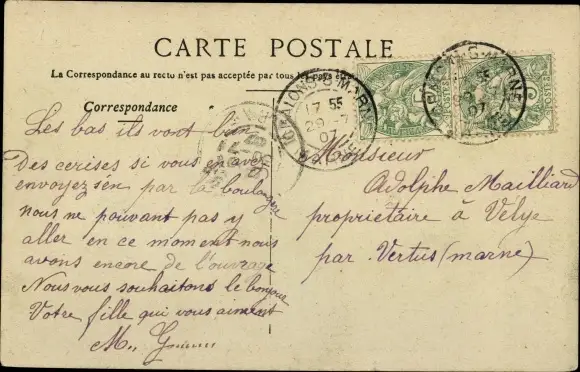 CARTE POSTALE
La Correspondance au recto n'est pas acceptée par tous les pays
Correspondance
CHALONS-S-MARNE
17 55
29 -7
07
Les bas ils vont bien
Des cerises si vous en avez
envoyez s'en par la boulangère
nous ne pouvant pas y
aller en ce moment nous
avons encore de l'ouvrage
Nous vous souhaitons le bonjour
Votre fille qui vous aiment
M.
Monsieur
Adolphe Mailliard
propriétaire à Vélye
par Vertus (marne)